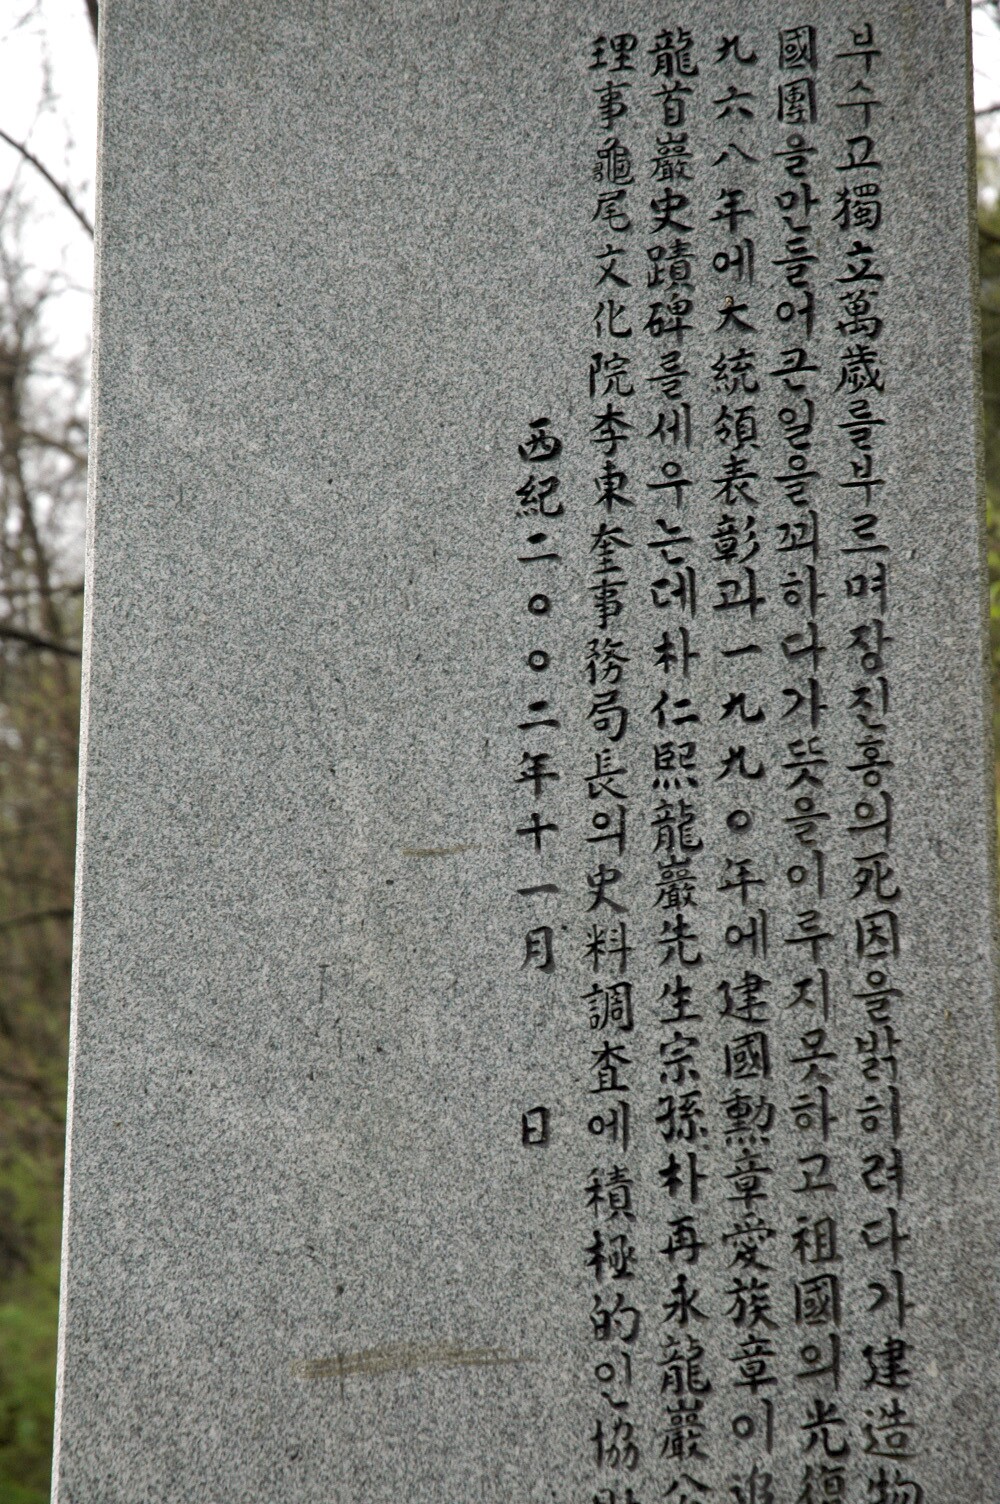 부수고獨立萬歲를부르며장진홍의死因을밝히려다가建造物
國團을만들어큰일을꾀하다가뜻을이루지못하고祖國의光復
九六八年에大統領表彰과一九九○年에建國勳章愛族章이追
龍首巖史蹟碑를세우는데朴仁熙龍巖先生宗孫朴再永龍巖公
理事龜尾文化院李東奎事務局長의史料調査에積極的인協
西紀二○○二年十一月 日